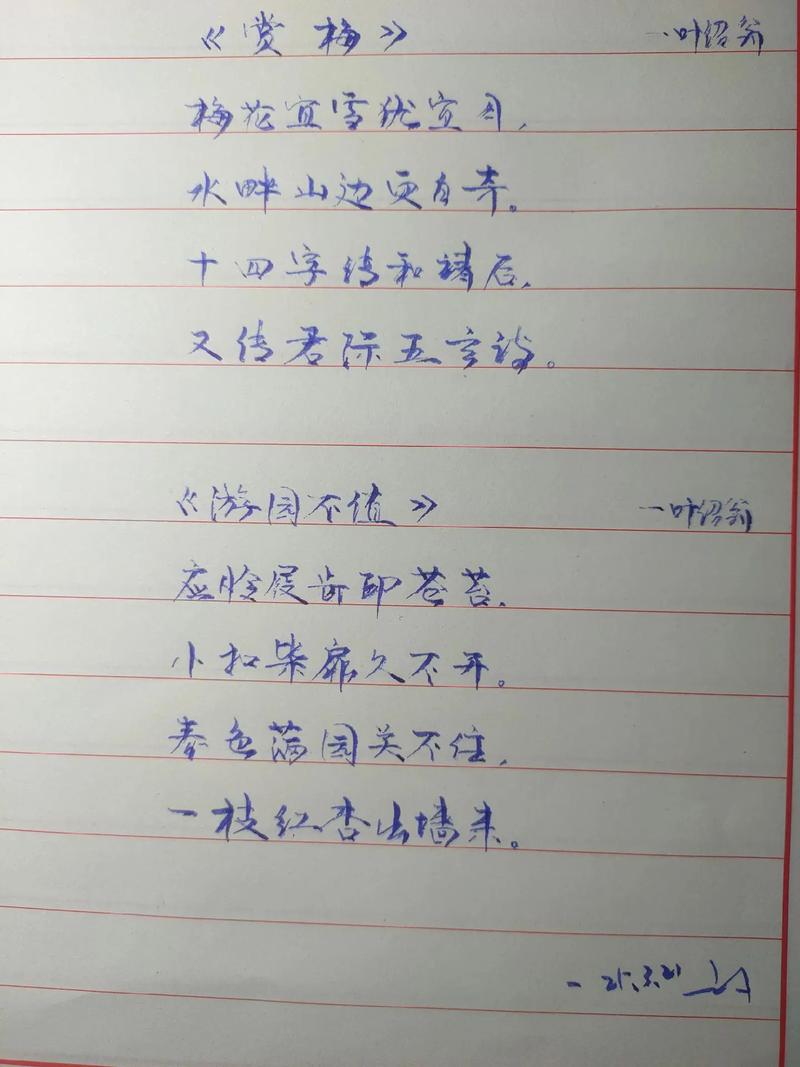 《赏梅》 一叶绍翁
梅花宜雪犹宜月,
水畔山边更自奇。
十四字传和靖后,
又传君际五言诗。
《游园不值》 一叶绍翁
应怜屐齿印苍苔,
小扣柴扉久不开。
春色满园关不住,
一枝红杏出墙来。
一25.3.21